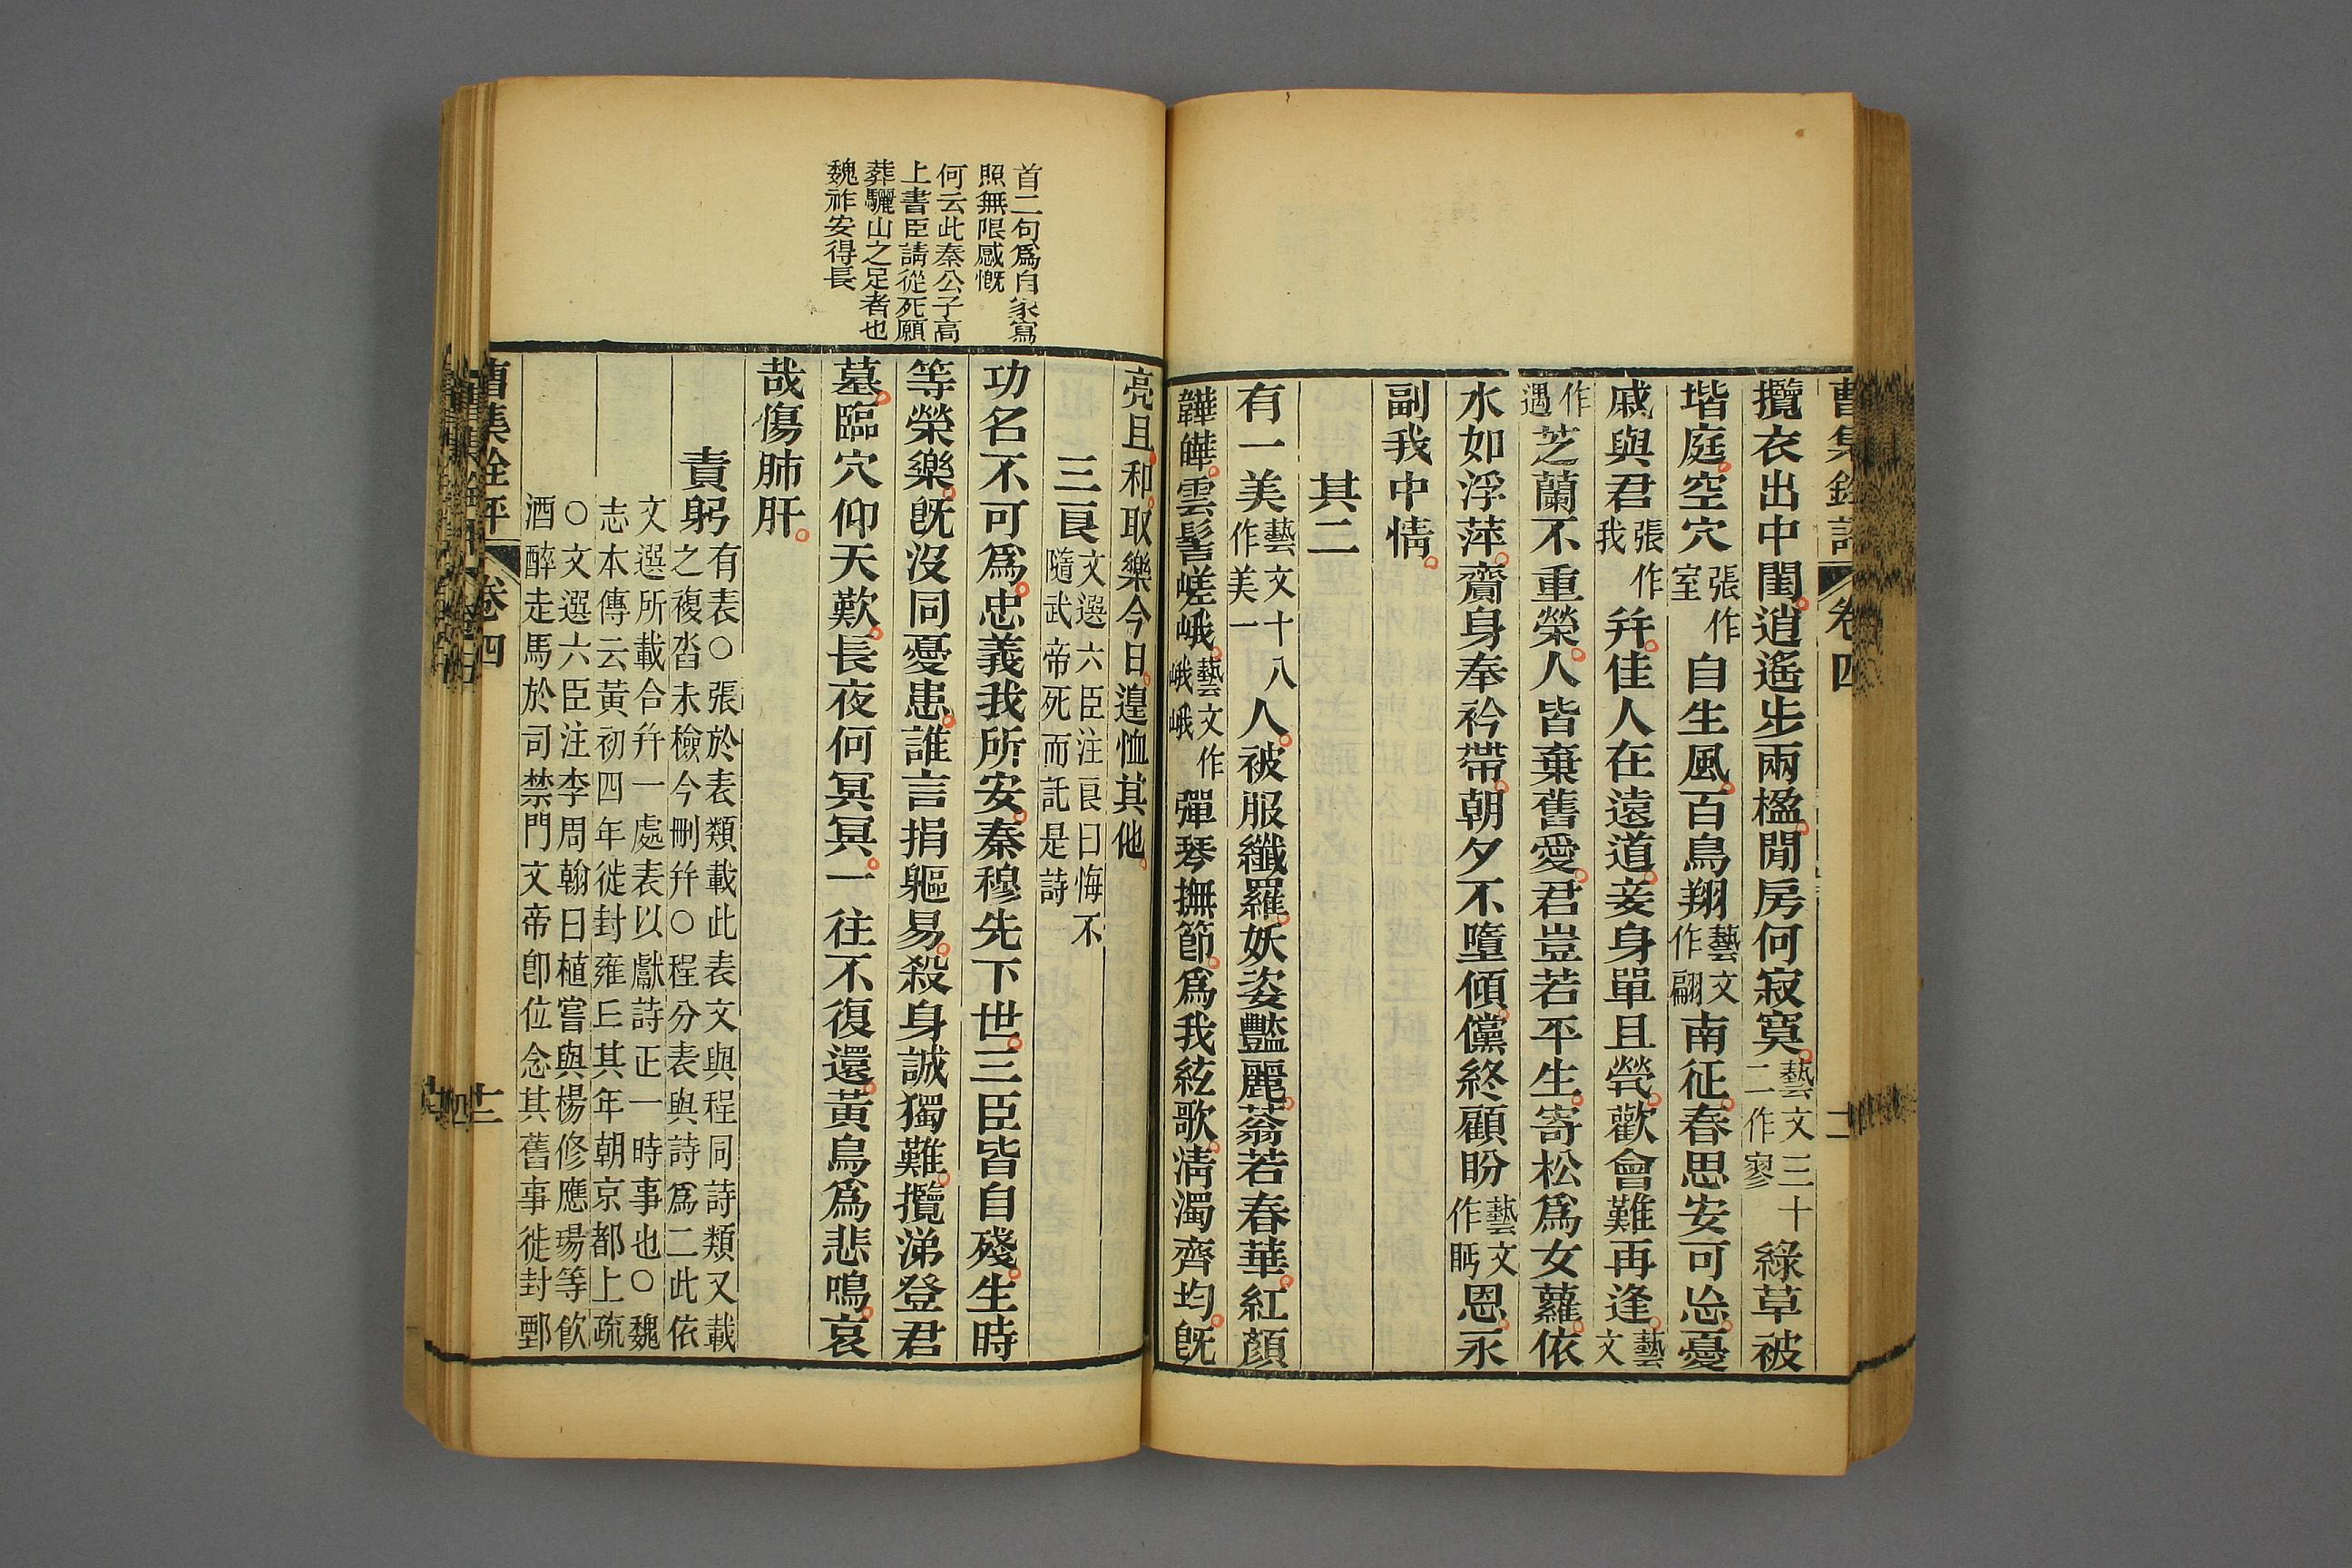 曹集銓評 卷四
攬衣出中閨逍遙步兩楹閒房何寂寞藝文三十二作寥綠草被
堦庭空穴張作室自生風百鳥翔藝文作翩南征春思安可忘憂
戚與君張作我幷佳人在遠道妾身單且煢歡會難再逢藝文
作遇芝蘭不重榮人皆棄舊愛君豈若平生寄松爲女蘿依
水如浮萍齎身奉衿帶朝夕不墮傾儻終顧盼藝文作眄恩永
副我中情
其二
有一美藝文十八作美一人被服纖羅妖姿豔麗蓊若春華紅顏
韡曄雲髻嵯峨藝文作峨峨彈琴撫節爲我絃歌淸濁齊均旣
亮且和取樂今日遑恤其他
三良文選六臣注良曰悔不隨武帝死而託是詩
功名不可爲忠義我所安秦穆先下世三臣皆自殘生時
等榮樂旣沒同憂患誰言捐軀易殺身誠獨難攬涕登君
墓臨穴仰天歎長夜何冥冥一往不復還黃鳥爲悲鳴哀
哉傷肺肝
責躬有表○張於表類載此表文與程同詩類又載之複沓未檢今刪幷○程分表與詩爲二此依
文選所載合幷一處表以獻詩正一時事也○魏志本傳云黃初四年徙封雍丘其年朝京都上疏
○文選六臣注李周翰曰植嘗與楊修應瑒等飮酒醉走馬於司禁門文帝卽位念其舊事徙封鄄
曹集銓評 卷四
十二
首二句爲自家寫
照無限感慨
何云此秦公子高
上書臣請從死願
葬驪山之足者也
魏祚安得長